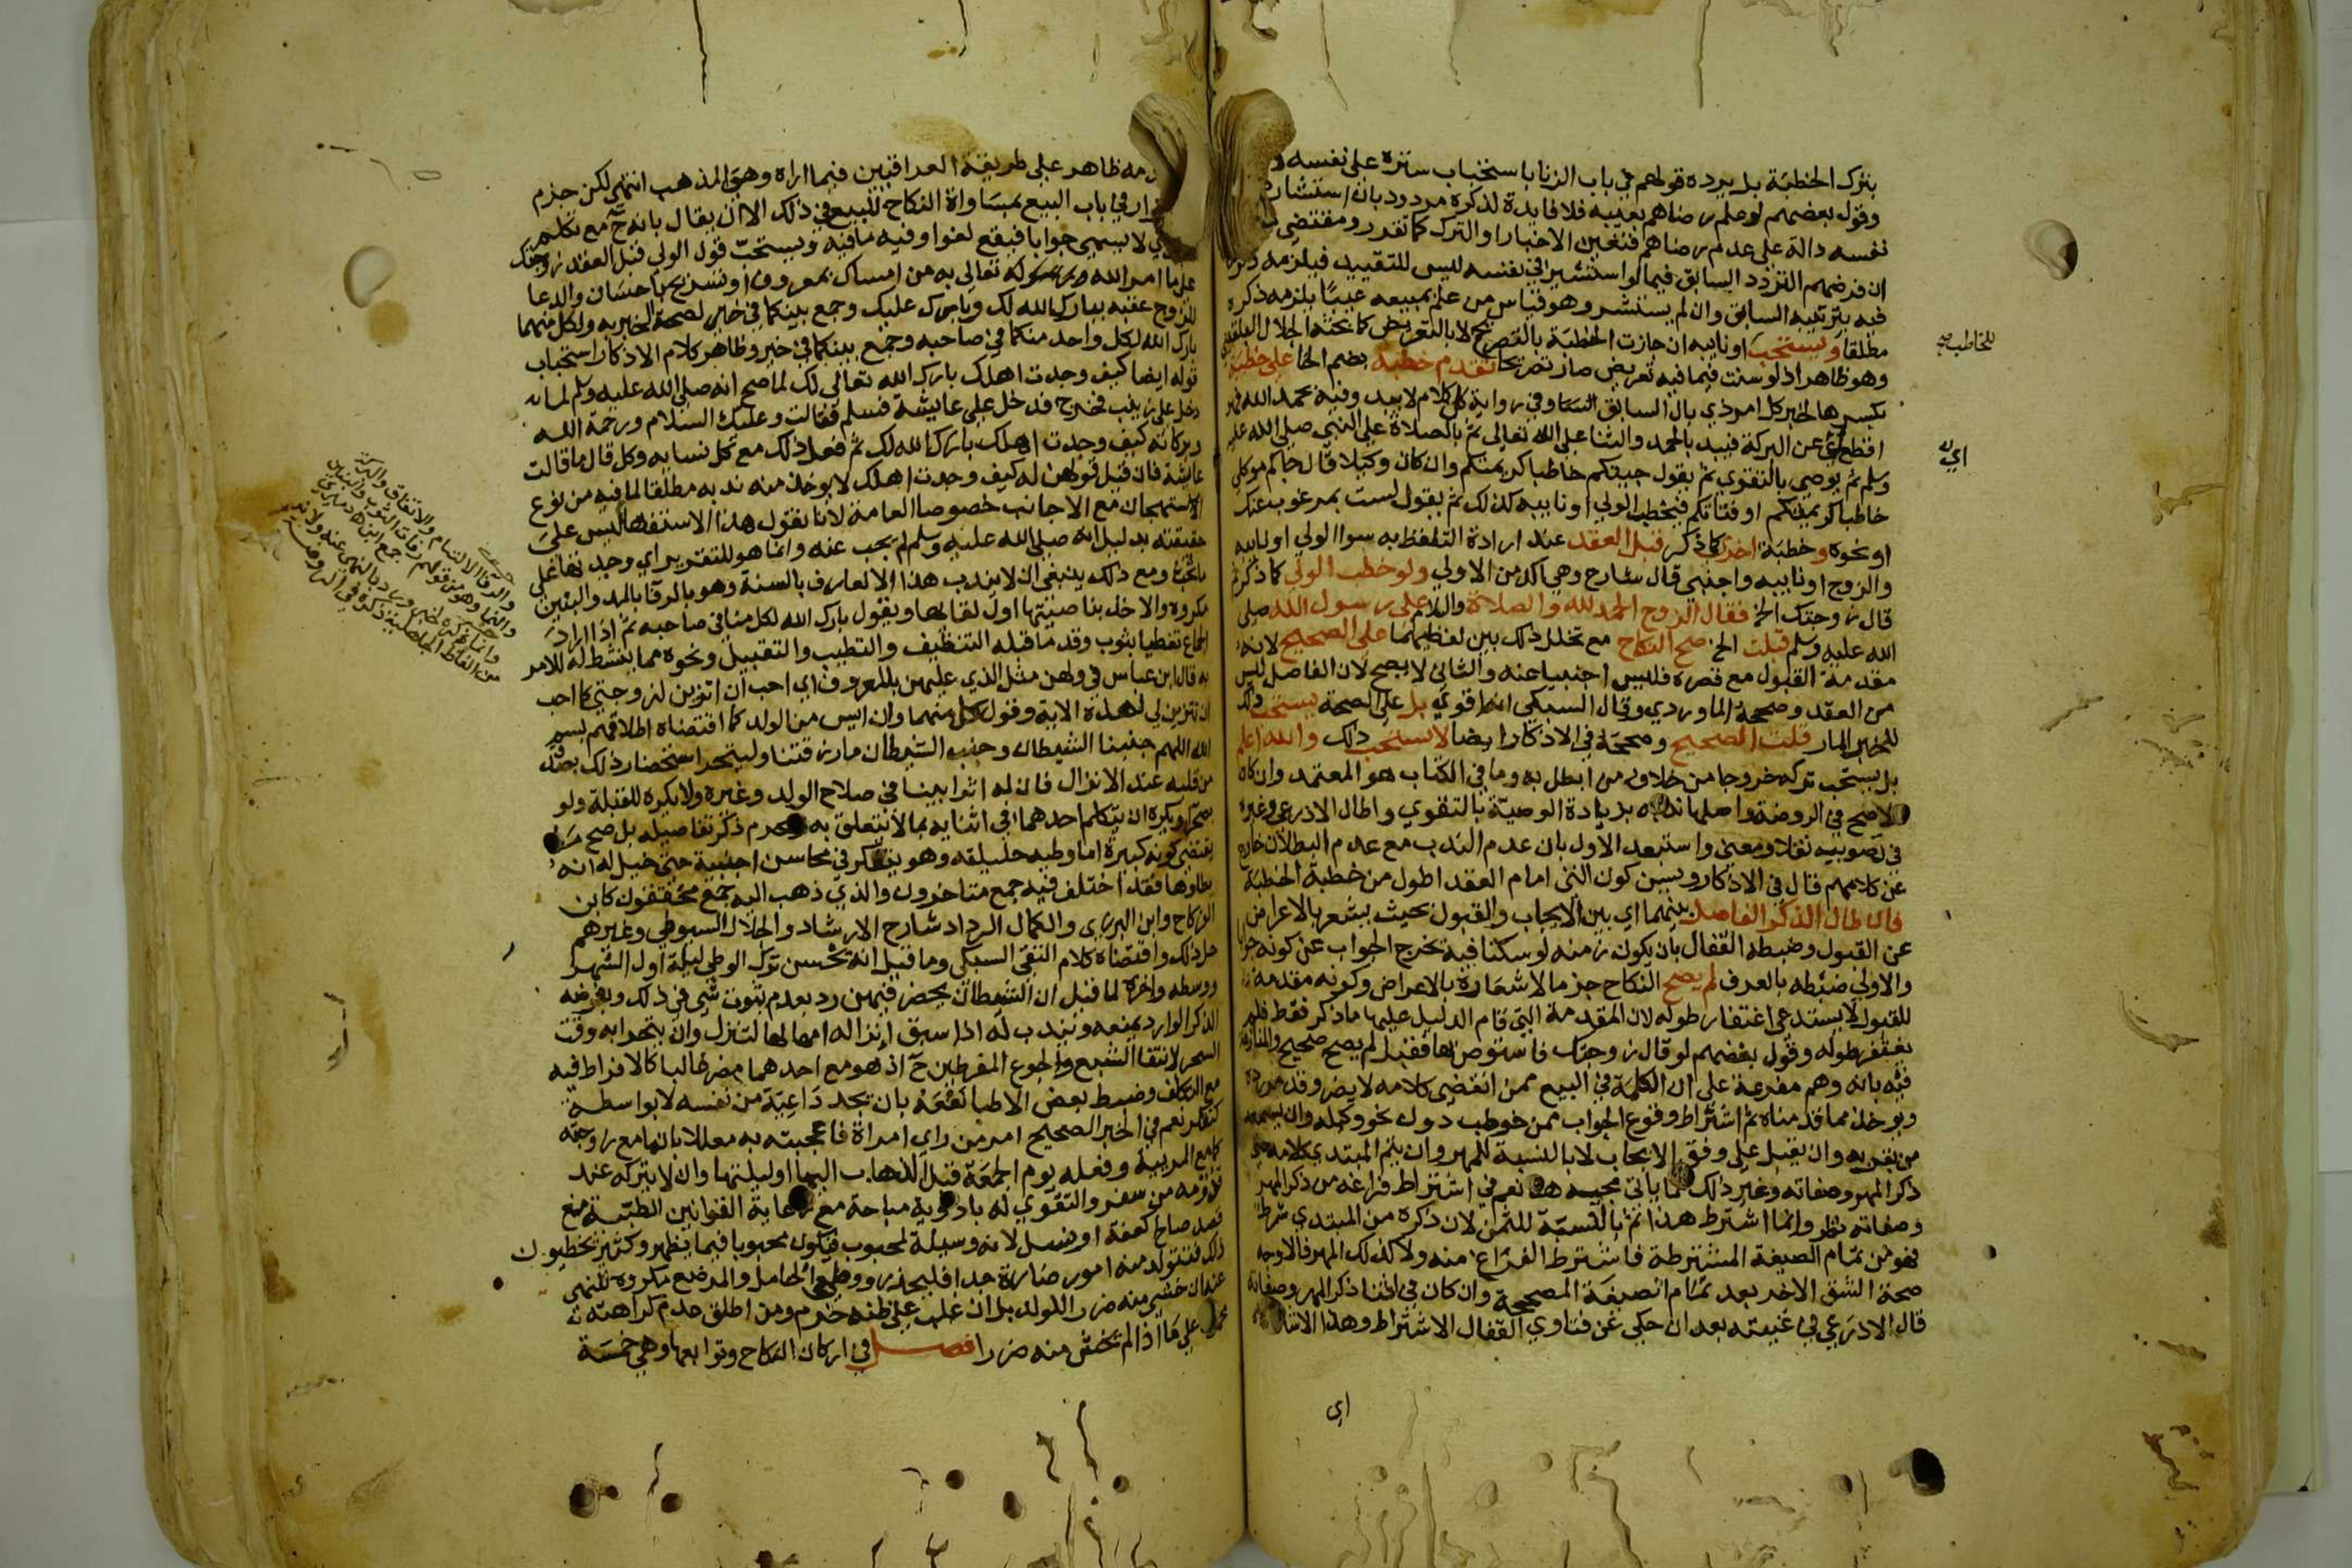 بترك الخطبة بل يرده قولهم في باب الزنا باستحباب ستره على نفسه
وقول بعضهم لو علم رضاهم بعيبه فلا فايدة لذكره مردود بان استشار
نفسه دالة على عدم رضاهم فتعين الاخبار او الترك كما تقرر ومقتضى
ان فرضهم التردد السابق فيما لو استشير في نفسه ليس للتقييد فيلزمه ذكر
فيه بترتيبه السابق وان لم يستشر وهو قياس من علم بمبيعه عيبا يلزمه ذكره
مطلقا ويستحب او نايبه ان جازت الخطبة بالتصريح لا بالتعريض كما بحثه الجلال البلقيني
للخاطب صح
وهو ظاهر اذ لو سنت فيما فيه تعريض صار تصريحا تقدم خطبة بضم الخا على خطبة
بكسرها لخبر كل امر ذي بال السابق وفي رواية كل كلام لا يبدا فيه بحمد الله فهو
اقطع عن البركة فيبدا بالحمد والثنا على الله تعالى ثم بالصلاة على النبي صلى الله عليه
اي
وسلم ثم يوصي بالتقوى ثم يقول جيتكم خاطبا كريمتكم وان كان وكيلا قال جاكم موكلي
خاطبا كريمتكم او فتاتكم فيخطب الولي او نايبه كذلك ثم يقول لست بمرغوب عنك
او نحوه وخطبة اخرى كما ذكر قبل العقد عند ارادة التلفظ به سوا الولي او نايبه
والزوج او نايبه واجنبي قال شارح وهي اكد من الاولى ولو خطب الولي كما ذكر ثم
قال زوجتك الخ فقال الزوج الحمد لله والصلاة والسلام على رسول الله صلى
الله عليه وسلم قبلت الخ صح النكاح مع تخلل ذلك بين لفظيهما على الصحيح لانه
مقدمة القبول مع قصره فليس اجنبيا عنه والثاني لا يصح لان الفاصل ليس
من العقد وصححه الماوردي وقال السبكي انه اقوى بل على الصحة يستحب ذلك
للخبر المار قلت الصحيح وصححه في الاذكار ايضا لا يستحب ذلك والله اعلم
بل يستحب تركه خروجا من خلاف من ابطل به وما في الكتاب هو المعتمد وان كان
الاصح في الروضة واصلها ندبه بزيادة الوصية بالتقوى واطال الاذرعي وغيره
في تصويبه نقلا ومعنى واستبعد الاول بان عدم الندب مع عدم البطلان خارج
عن كلامهم قال في الاذكار ويسن كون التي امام العقد اطول من خطبة الخطبة
فان طال الذكر الفاصل بينهما اي بين الايجاب والقبول بحيث يشعر بالاعراض
عن القبول وضبطه القفال بان يكون زمنه لو سكتا فيه لخرج الجواب عن كونه جوابا
والاولى ضبطه بالعرف لم يصح النكاح جزما لاشعاره بالاعراض وكونه مقدمة
للقبول لا يستدعي اغتفار طوله لان المقدمة التي قام الدليل عليها ما ذكر فقط فلم
يغتفر طوله وقول بعضهم لو قال زوجتك فاستوص بها فقبل لم يصح صحيح والمنازعة
فيه بانه وهم مفرعة على ان الكلمة في البيع ممن انقضى كلامه لا يضر وقد مر رده
ويوخذ مما قدمناه ثم اشتراط وقوع الجواب ممن خوطب دون نحو وكيله وان يسمعه
من بقربه وان يقبل على وفق الايجاب لا بالنسبة للمهر وان يتم المبتدي كلامه حتى
ذكر المهر وصفاته وغير ذلك مما ياتي مجيبه هنا نعم في اشتراط فراغه من ذكر المهر
وصفاته نظر وانما اشترط هذا ثم بالنسبة للثمن لان ذكره من المبتدي شرط
فهو من تمام الصيغة المشترطة فاشترط الفراغ منه ولا كذلك المهر فالاوجه
صحة الشق الاخر بعد تمام الصيغة المصححة وان كان في اثنا ذكر المهر وصفاته
قال الاذرعي في غنيته بعد ان حكى عن فتاوي القفال الاشتراط وهذا الاشتراط
اي
ظاهر على طريقة العراقيين فيما اراه وهي المذهب انتهى لكن جزم
في باب البيع بمساواة النكاح للبيع في ذلك الا ان يقال بانه ثم مع تكلم
لا يسمى جوابا فيقع لغوا وفيه ما فيه ويستحب قول الولي قبل العقد زوجتك
على ما امر الله تعالى به من امساك بمعروف او تسريح باحسان والدعا
للزوج عقبه ببارك الله لك وبارك عليك وجمع بينكما في خير لصحة الخبر به ولكل منهما
بارك الله لكل واحد منكما في صاحبه وجمع بينكما في خير وظاهر كلام الاذكار استحباب
قوله ايضا كيف وجدت اهلك بارك الله تعالى لك لما صح انه صلى الله عليه وسلم لما
دخل على زينب فخرج فدخل على عايشة فسلم فقالت وعليك السلام ورحمة الله
وبركاته كيف وجدت اهلك بارك الله لك ثم فعل ذلك مع كل نسايه وكل قال ما قالت
عايشة فان قيل قولهن له كيف وجدت اهلك لا يوخذ منه ندبه مطلقا لما فيه من نوع
الاستهجان مع الاجانب خصوصا العامة لانا نقول هذا الاستفهام ليس على
حقيقته بدليل انه صلى الله عليه وسلم لم يجب عنه وانما هو للتقرير اي وجدتها على
ما تحب ومع ذلك ينبغي ان لا يندب هذا الا لعارف بالسنة وهو بالرفا بالمد والبنين
مكروه والاخذ بناصيتها اول لقايها ويقول بارك الله لكل منا في صاحبه ثم اذا اراد
الجماع تغطيا بثوب وقدما قبله التنظيف والتطيب والتقبيل ونحوه مما ينشط له للامر
به قال ابن عباس في ولهن مثل الذي عليهن بالمعروف اني احب ان اتزين لزوجتي كما احب
ان تتزين لي لهذه الاية وقول كل منهما وان ايس من الولد كما اقتضاه اطلاقهم بسم
الله اللهم جنبنا الشيطان وجنب الشيطان ما رزقتنا وليتحر استحضار ذلك بصدق
من قلبه عند الانزال فان له اثرا بينا في صلاح الولد وغيره ولا يكره للقبلة ولو
بصحرا ويكره ان يتكلم احدهما في اثنايه بما لا يتعلق به ويحرم ذكر تفاصيله بل صح ما
يقتضي كونه كبيرة اما وطيه حليلته وهو يتفكر في محاسن اجنبية حتى خيل له انه
يطاوها فقد اختلف فيه جمع متاخرون والذي ذهب اليه جمع محققون كابن
الفركاح وابن البزري والكمال الرداد شارح الارشاد والجلال السيوطي وغيرهم
حل ذلك واقتضاه كلام التقي السبكي وما قيل انه يحسن ترك الوطي ليلة اول الشهر
ووسطه واخره لما قيل ان الشيطان يحضر فيهن رد بعدم ثبوت شي في ذلك وبفرضه
الذكر الوارد يمنعه ويندب له اذا سبق انزاله امهالها لتنزل وان يتحرا به وقت
السحر لانتفا الشبع والجوع المفرطين ح اذ هو مع احدهما مضر غالبا كالافراط فيه
مع التكلف وضبط بعض الاطبا نفعه بان يجد داعية من نفسه لا بواسطة
كتفكر نعم في الخبر الصحيح امر من راى امراة فاعجبته به معللا بان ما مع زوجته
كما مع المرييه وفعله يوم الجمعة قبل الذهاب اليها او ليلتها وان لا يتركه عند
قدومه من سفر والتقوي له بادوية مباحة مع رعاية القوانين الطبية مع
قصد صالح كعفة او نسل لانه وسيلة لمحبوب فيكون محبوبا فيما يظهر وكثير يخطيون
ذلك فتتولد منه امور ضارة جدا فليحذر ووطي الحامل والمرضع مكروه للنهي
عنه ان خشي منه ضرر الولد بل ان غلب على ظنه حرم ومن اطلق عدم كراهته
على ما اذا لم تخش منه ضررا فصل في اركان النكاح وتوابعها وهي خمسة
والرفا الالتيام والاتفاق والبركة
والنما وهو من قولهم رفات الثوب